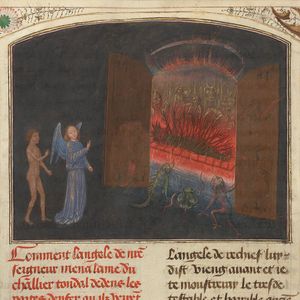 Comment langele de nre
seigneur mena lame du
chllier tondal dedens les
portes denfer ou il veyt
Langele de rechief luy
dist Vieng auant et ie
te monstreray le tresde
testable et